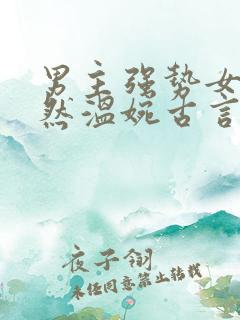 男主强势女
然温婉古言
夜子翎
未经同意禁止转载